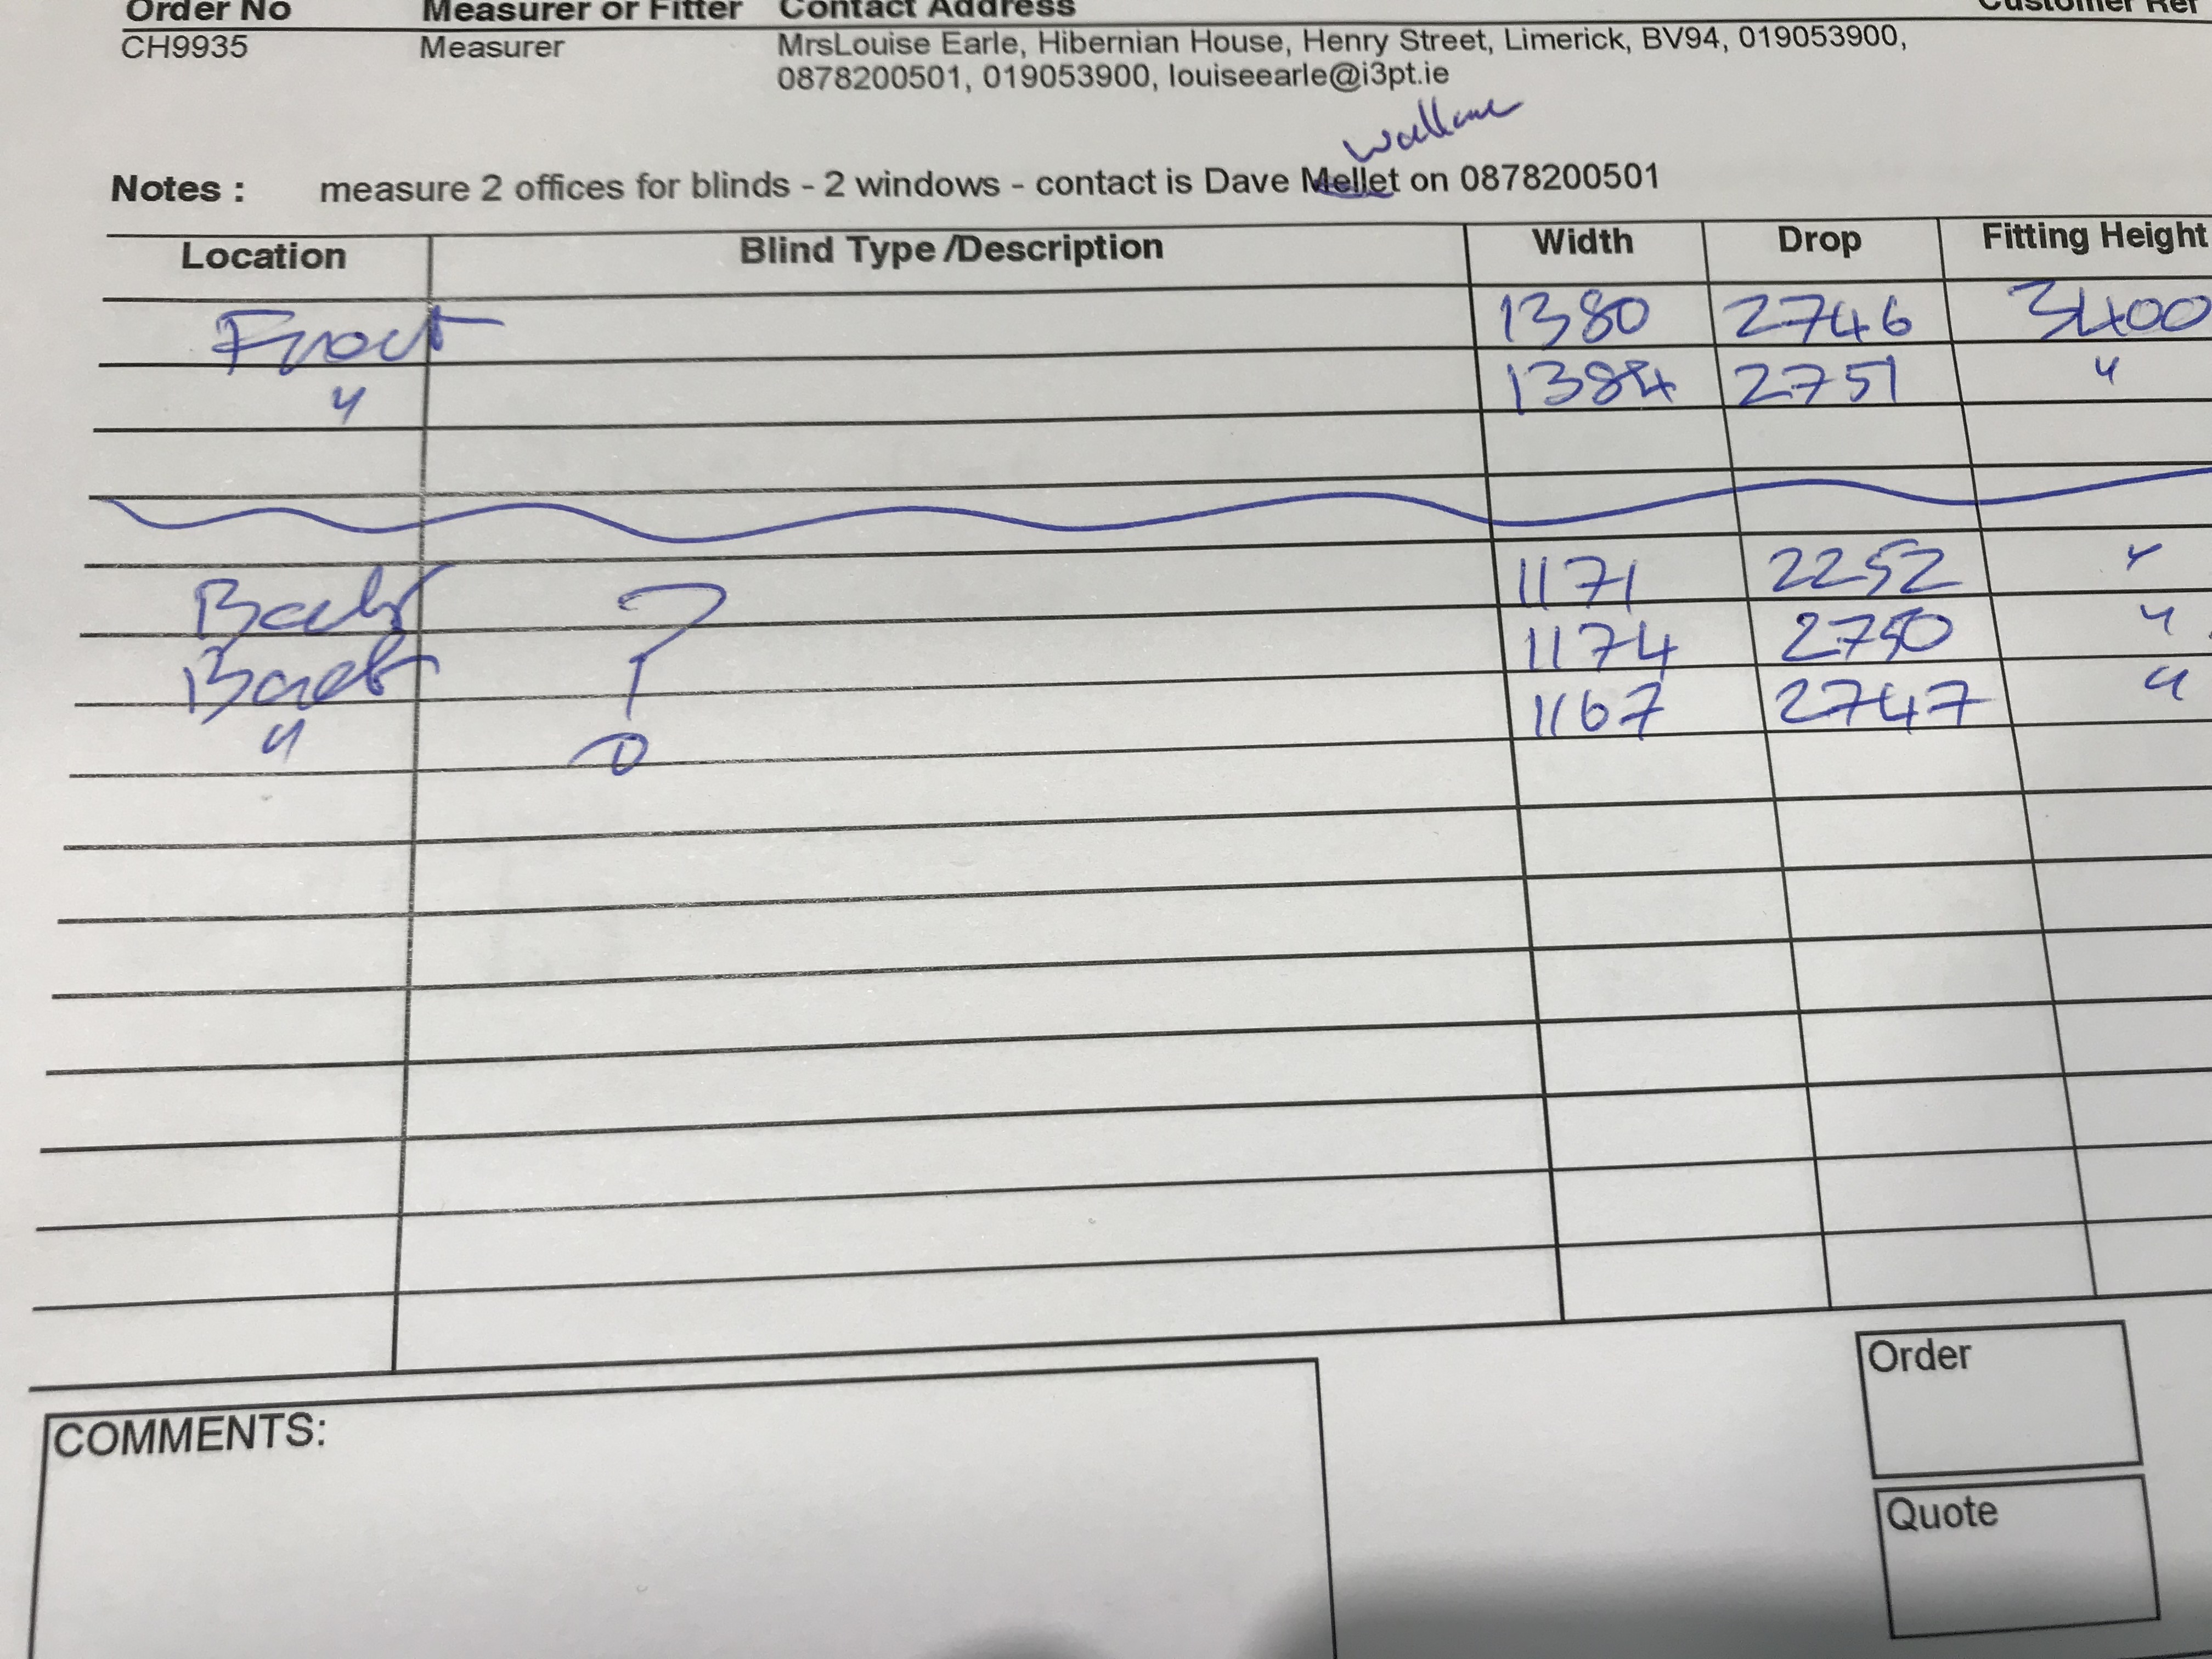 Order No Measurer or Fitter Contact Address Customer Ref
CH9935 Measurer MrsLouise Earle, Hibernian House, Henry Street, Limerick, BV94, 019053900,
0878200501, 019053900, louiseearle@i3pt.ie
Notes : measure 2 offices for blinds - 2 windows - contact is Dave Mellet on 0878200501
Location Blind Type /Description Width Drop Fitting Height
Front 1380 2746 3400
" 1384 2751 "
Back ? 1171 2252 "
Back 1174 2750 "
" 1167 2747 "
COMMENTS:
Order
Quote